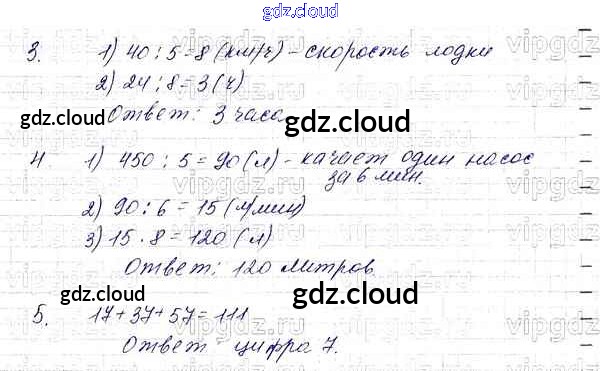 gdz.cloud
3. 1) 40 : 5 = 8 (км/ч) - скорость лодки
2) 24 : 8 = 3 (ч)
Ответ: 3 часа
gdz.cloud gdz.cloud
4 1) 450 : 5 = 90 (л) - качает один насос
за 6 мин.
2) 90 : 6 = 15 (л/мин)
3) 15 · 8 = 120 (л)
Ответ: 120 литров
gdz.cloud gdz.cloud
5. 17 + 37 + 57 = 111
Ответ цифра 7.